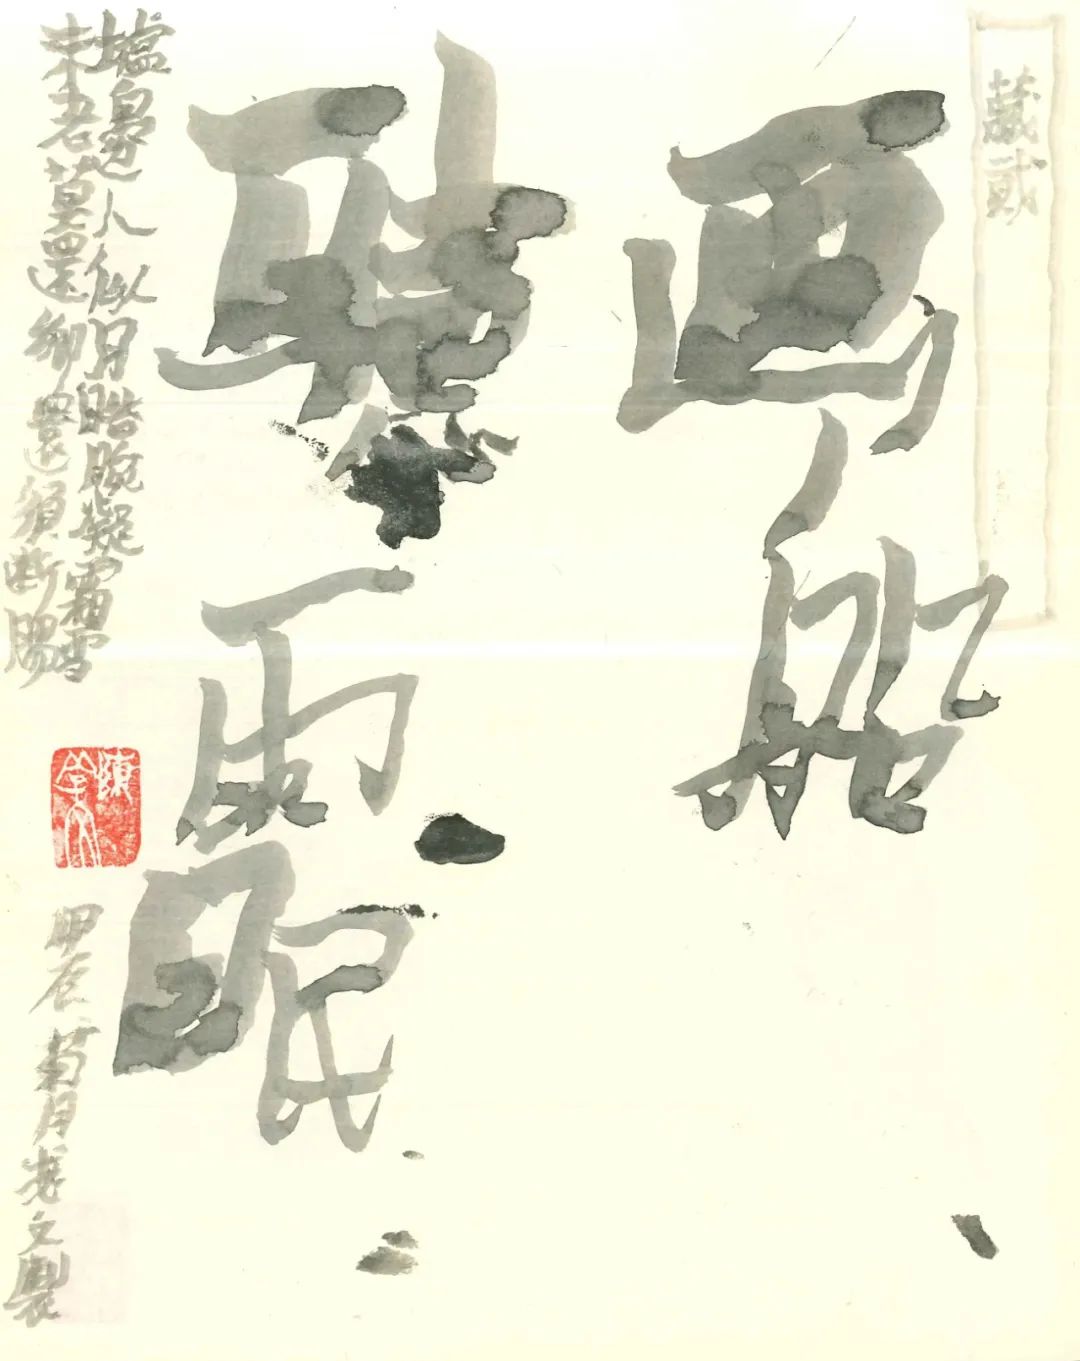 藏貳
画船
聽雨眠
壚邉人似月皓腕凝霜雪
未老莫還鄉還須断腸
陳 文
甲辰菊月 文製